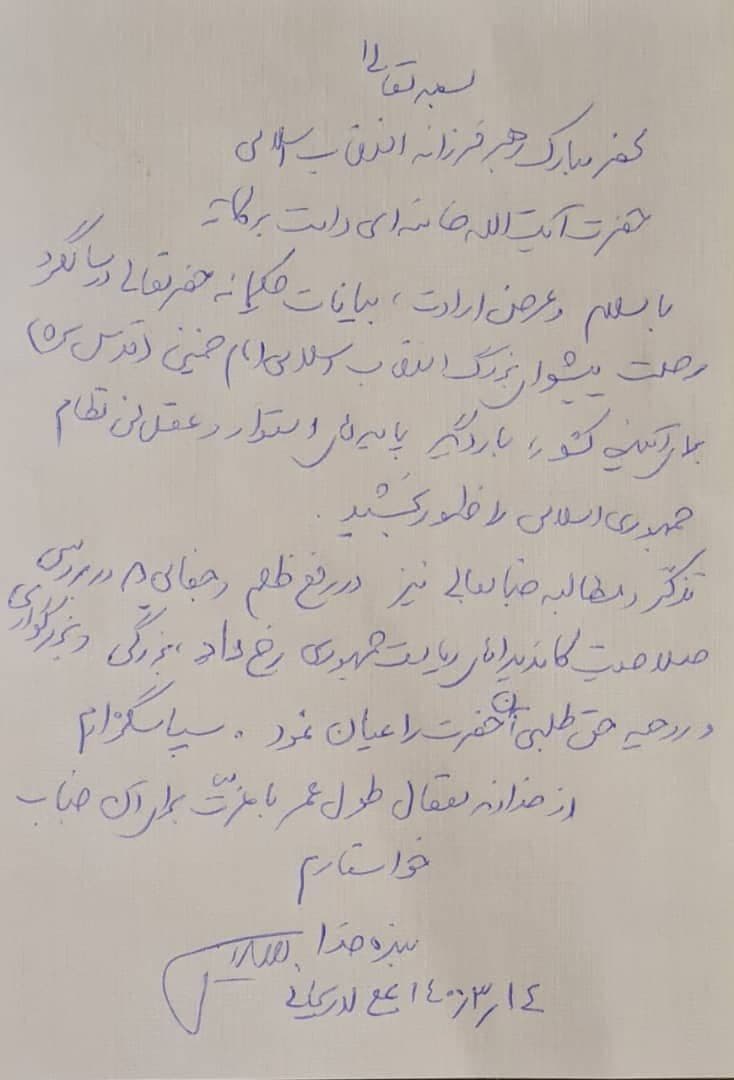 بسمه تعالی
محضر مبارک رهبر فرزانه انقلاب اسلامی
حضرت آیت الله خامنه ای دامت برکاته
با سلام و عرض ارادت، بیانات حکیمانه حضرتعالی در سالگرد
رحلت پیشوای بزرگ انقلاب اسلامی امام خمینی (قدس سره)
برای آتیه کشور، بار دگیر پایه های استوار و عقلانی نظام
جمهوری اسلامی را ظهور بخشید.
تذکر و مطالبه جنابعالی نیز در رفع ظلم و جفایی که در بررسی
صلاحیت کاندیداهای ریاست جمهوری رخ داد، بزرگی و بزرگواری
و روحیه حق طلبی آن حضرت را عیان نمود. سپاسگزارم
از خداوند متعال طول عمر با عزت برای آن جناب
خواستارم
بنده خدا
۱۴۰۰/۳/۱۴ علی لاریجانی